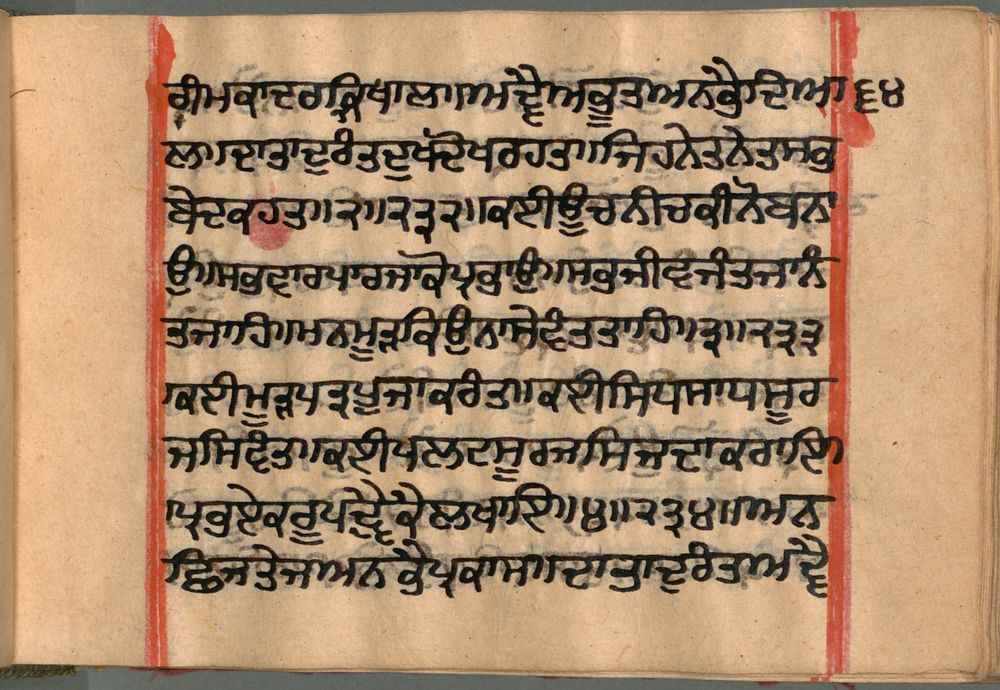 ਰੀਮਕਾਦਰਕ੍ਰਿਪਾਲ॥ਅਦ੍ਵੈਅਭੂਤਅਨਭੈਦਿਆ ੬੪
ਲ॥ਦਾਤਾਦੁਰੰਤਦੁਖਦੋਖਰਹਤ॥ਜਿਹਨੇਤਨੇਤਸਭ
ਬੇਦਕਹਤ॥੨॥੨੩੨॥ਕਈਊਚਨੀਚਕੀਨੋਬਨਾ
ਉ॥ਸਭਵਾਰਪਾਰਜਾਕੋਪ੍ਰਭਾਉ॥ਸਭਜੀਵਜੰਤਜਾਨੰ
ਤਜਾਹਿ॥ਮਨਮੂੜਕਿਉਨਾਸੇਵੰਤਤਾਹਿ॥੩॥੨੩੩
॥ਕਈਮੂੜਪਤ੍ਰਪੂਜਾਕਰੰਤ॥ਕਈਸਿਧਸਾਧਸੂਰ
ਜਸਿਵੰਤ॥ਕਈਪਲਟਸੂਰਜਸਿਜਦਾਕਰਾਇ
॥ਪ੍ਰਭਏਕਰੂਪਦ੍ਵੈਕੈਲਖਾਇ॥੪॥੨੩੪॥ਅਨ
ਛਿਜਤੇਜਅਨਭੈਪ੍ਰਕਾਸ॥ਦਾਤਾਦੁਰੰਤਅਦ੍ਵੈ